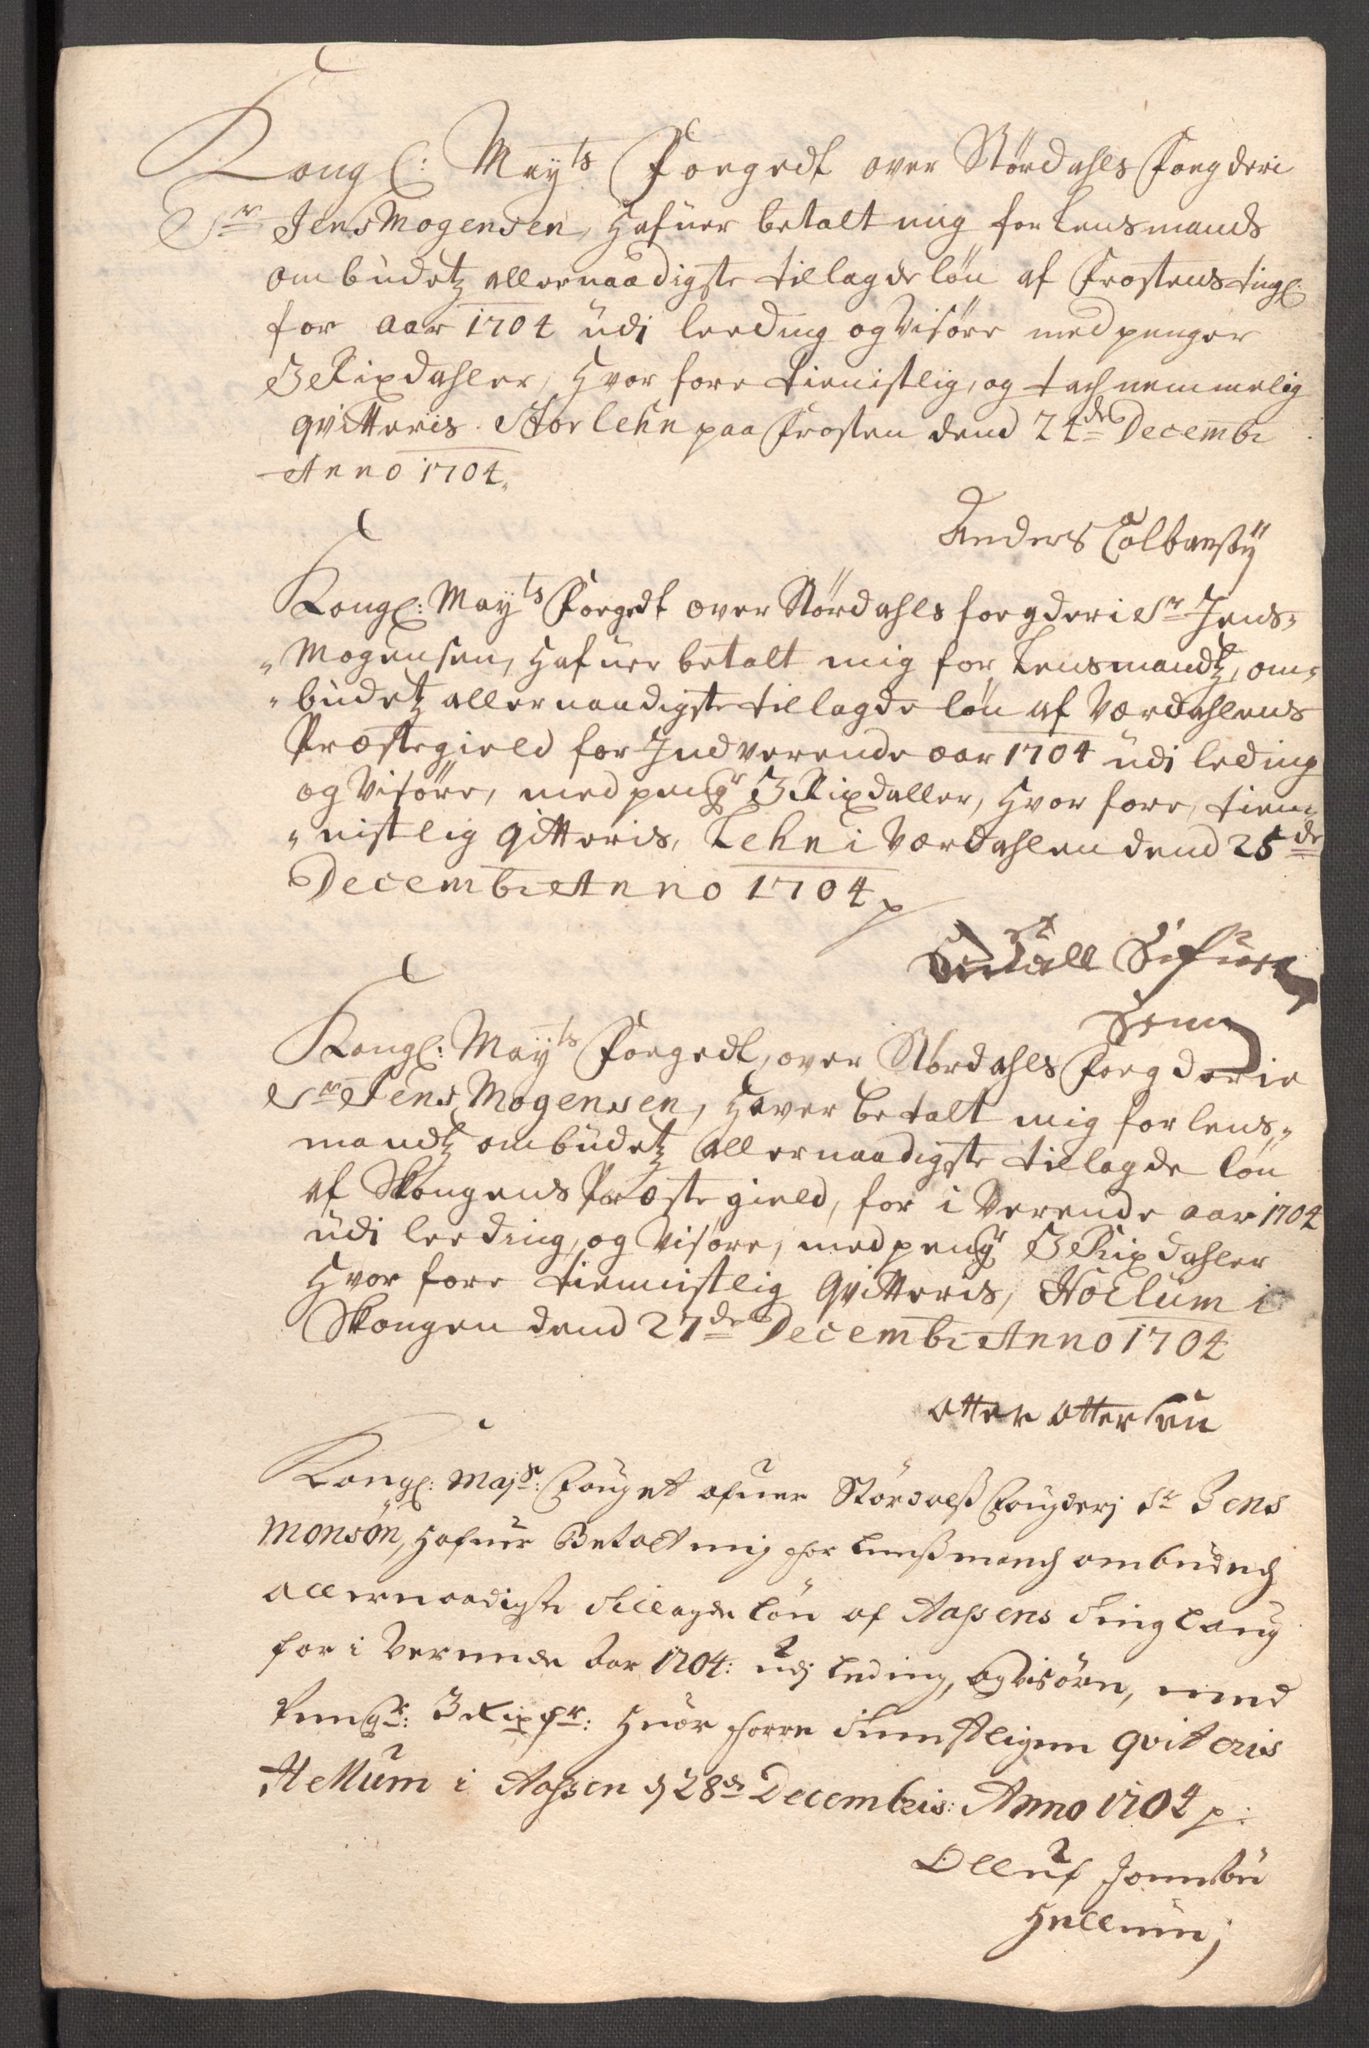 Kongl: Mayts Foegedt over Størdahls Foegderi
Sr Jens Mogensen, Hafuer betalt mig for Lensmands
ombudetz allernaadigste tillagde løn af Frostens tingl:
for aar 1704 udi leeding og Visøre med penger
3 Rixdahler, Hvor fore tienistlig, og tachnemmelig
qvitteris. Storlehn paa Frosten dend 24de Decembr
Anno 1704.
Anders
Kongl: Mayts Foegedt over Størdahls foegderi Sr Jens
Mogensen, Hafuer betalt mig for Lensmandtz, om-
budetz allernaadigste tillagde løn af Værdahlens
Præstegield for Indverende aar 1704 udi leding
og Visøre, med pengr 3 Rixdaller, Hvor fore, tien-
nistlig qitteris, Lehn i Værdahlen dend 25de
Decembr Anno 1704
Sifuer
Senn
Kongl: Mayts Foegedt, over Størdahls Foegderie
Sr Jens Mogensen, Haver betalt mig for lens-
mandtz ombudetz allernaadigste tillagde løn
af Skongens Præstegield, for i Verende aar 1704
udi leeding, og Visøre, med pengr 3 Rixdahler
Hvor fore tiennistlig qvitteris, Hoelum i
Skongen dend 27de Decembr Anno 1704
Otter Ottersen
Kongl: Majst: Fouget ofuer Størdalß Fougderj Sr Jens
Monsøn, Hafuer Betalt mig for Lenßmandz ombudedz
allernaadigste Tillagde Løn af Aaßens Tinglaug
for i Verende Aar 1704: udj Leding, og visøren, med
Pengr: 3 Rixdr: Huor forre Tienstligen qviteris
Hellum i Aaßen d 28de Decembris: Anno 1704 p:
Olluf Jonnsøn
Hellum;